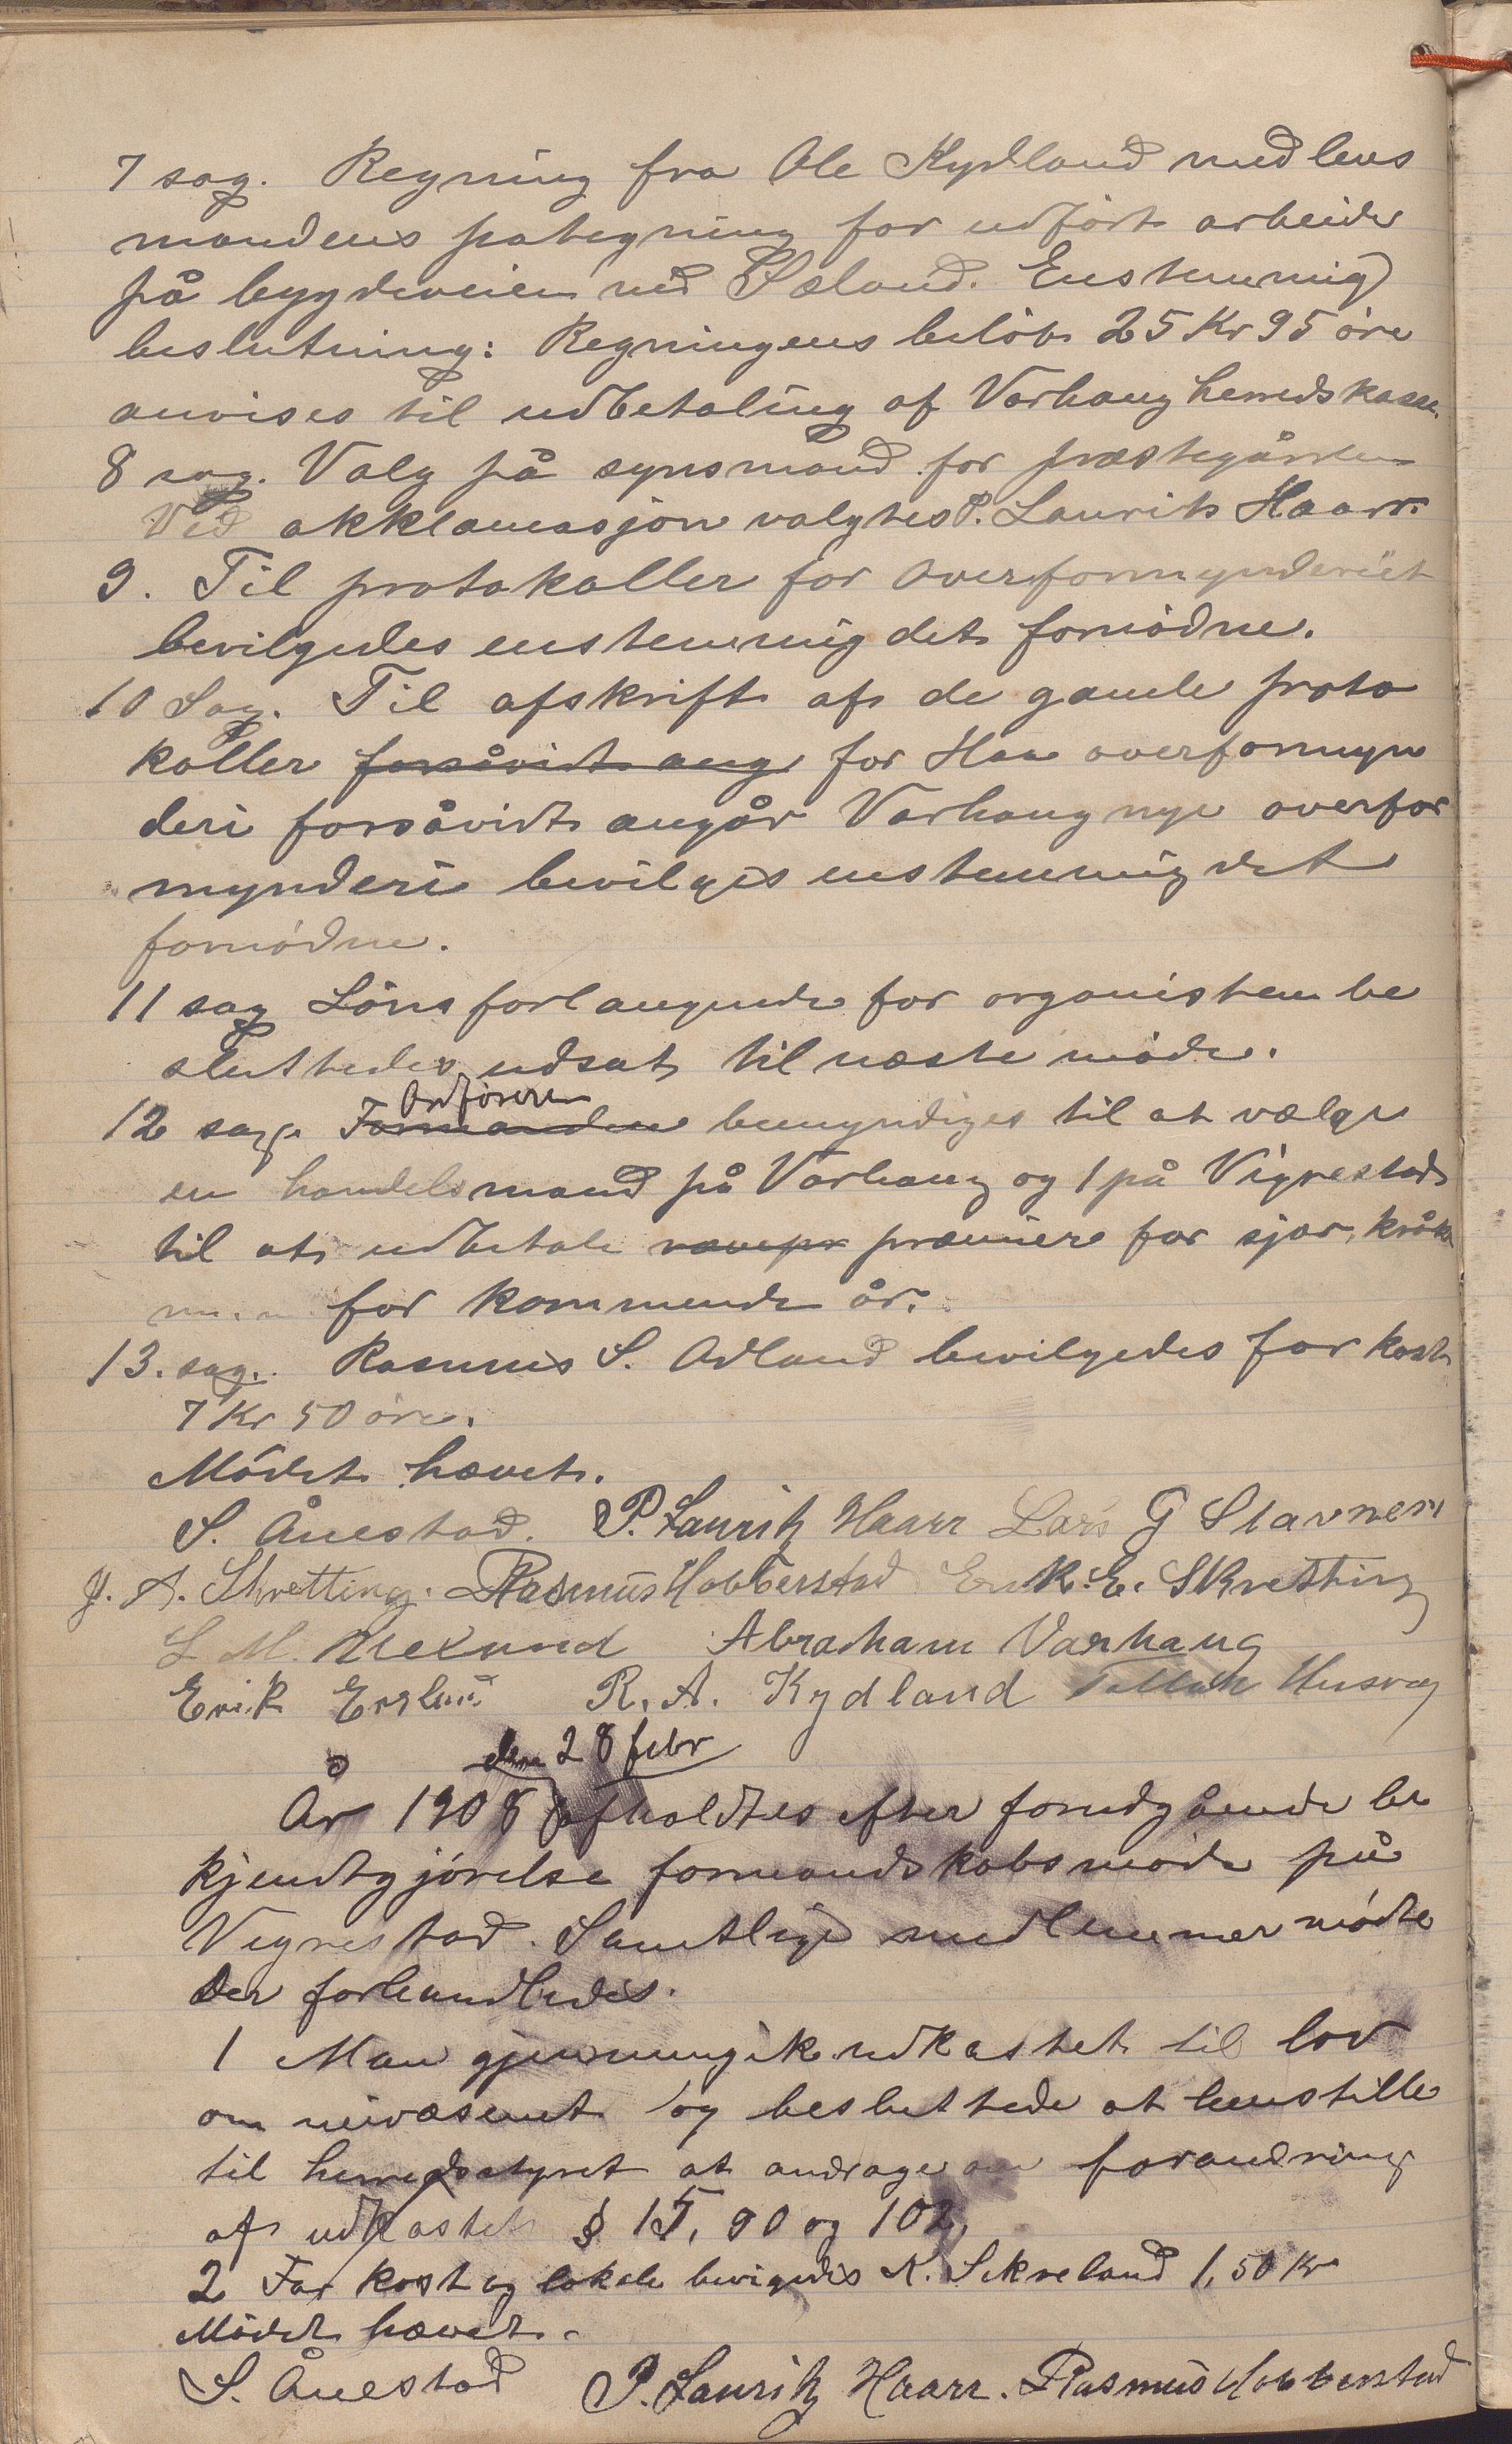 7 sag. Regning fra Ole Kydland med lens
mandens påtegning for udført arbeide
på bygdeveien ved Sæland. Enstemmig
beslutning: Regningens beløb 25 Kr 95 øre
anvises til udbetaling af Varhaug herredskasse.
8 sag. Valg på synsmand for præstegården
Ved akklamasjon valgtes P. Laurits Haarr.
9. Til protokoller for overformynderiet
bevilgedes enstemmig det fornødne.
10 Sag. Til afskrift af de gamle proto
koller forsåvidt ang for Haa overformyn
deri forsåvidt angår Varhaug nye overfor
mynderi bevilges enstemmig det
fornødne.
11 sag Lønsforlangende for organisten be
sluttedes udsat til næste møde.
Ordføreren
12 sag. Formanden bemyndiges til at vælge
en handelsmand på Varhaug og 1 på Vigrestad
til at udbetale ravepr præmier for sjor, kråke
m.m for kommende år.
13. sag. Rasmus S. Odland bevilgedes for kost
7 Kr 50 øre.
Mødet hævet.
S. Ånestad. P. Lauritz Haarr Lars G Stavnem
J. A. Skretting. Rasmus Hobberstad K. E. Skretting
L M. Abraham Varhaug
Erik R. A. Kydland Tollak Husvæg
den 28 febr
År 1908 afholdtes efter forudgående be
kjendtgjørelse formandskabsmøde på
Vigrestad. Samtlige medlemmer mødte
Der forhandledes.
1 Man gjennemgik udkastet til lov
om veivæsenet og besluttede at henstille
til herredsstyret at andrage om forandring
af udkastet § 15, 90 og 102.
2 For kost og lokale bevigedes K. Skreland 1,50 Kr
Mødet hævet.
S. Ånestad P. Lauritz Haarr. Rasmus Hobberstad